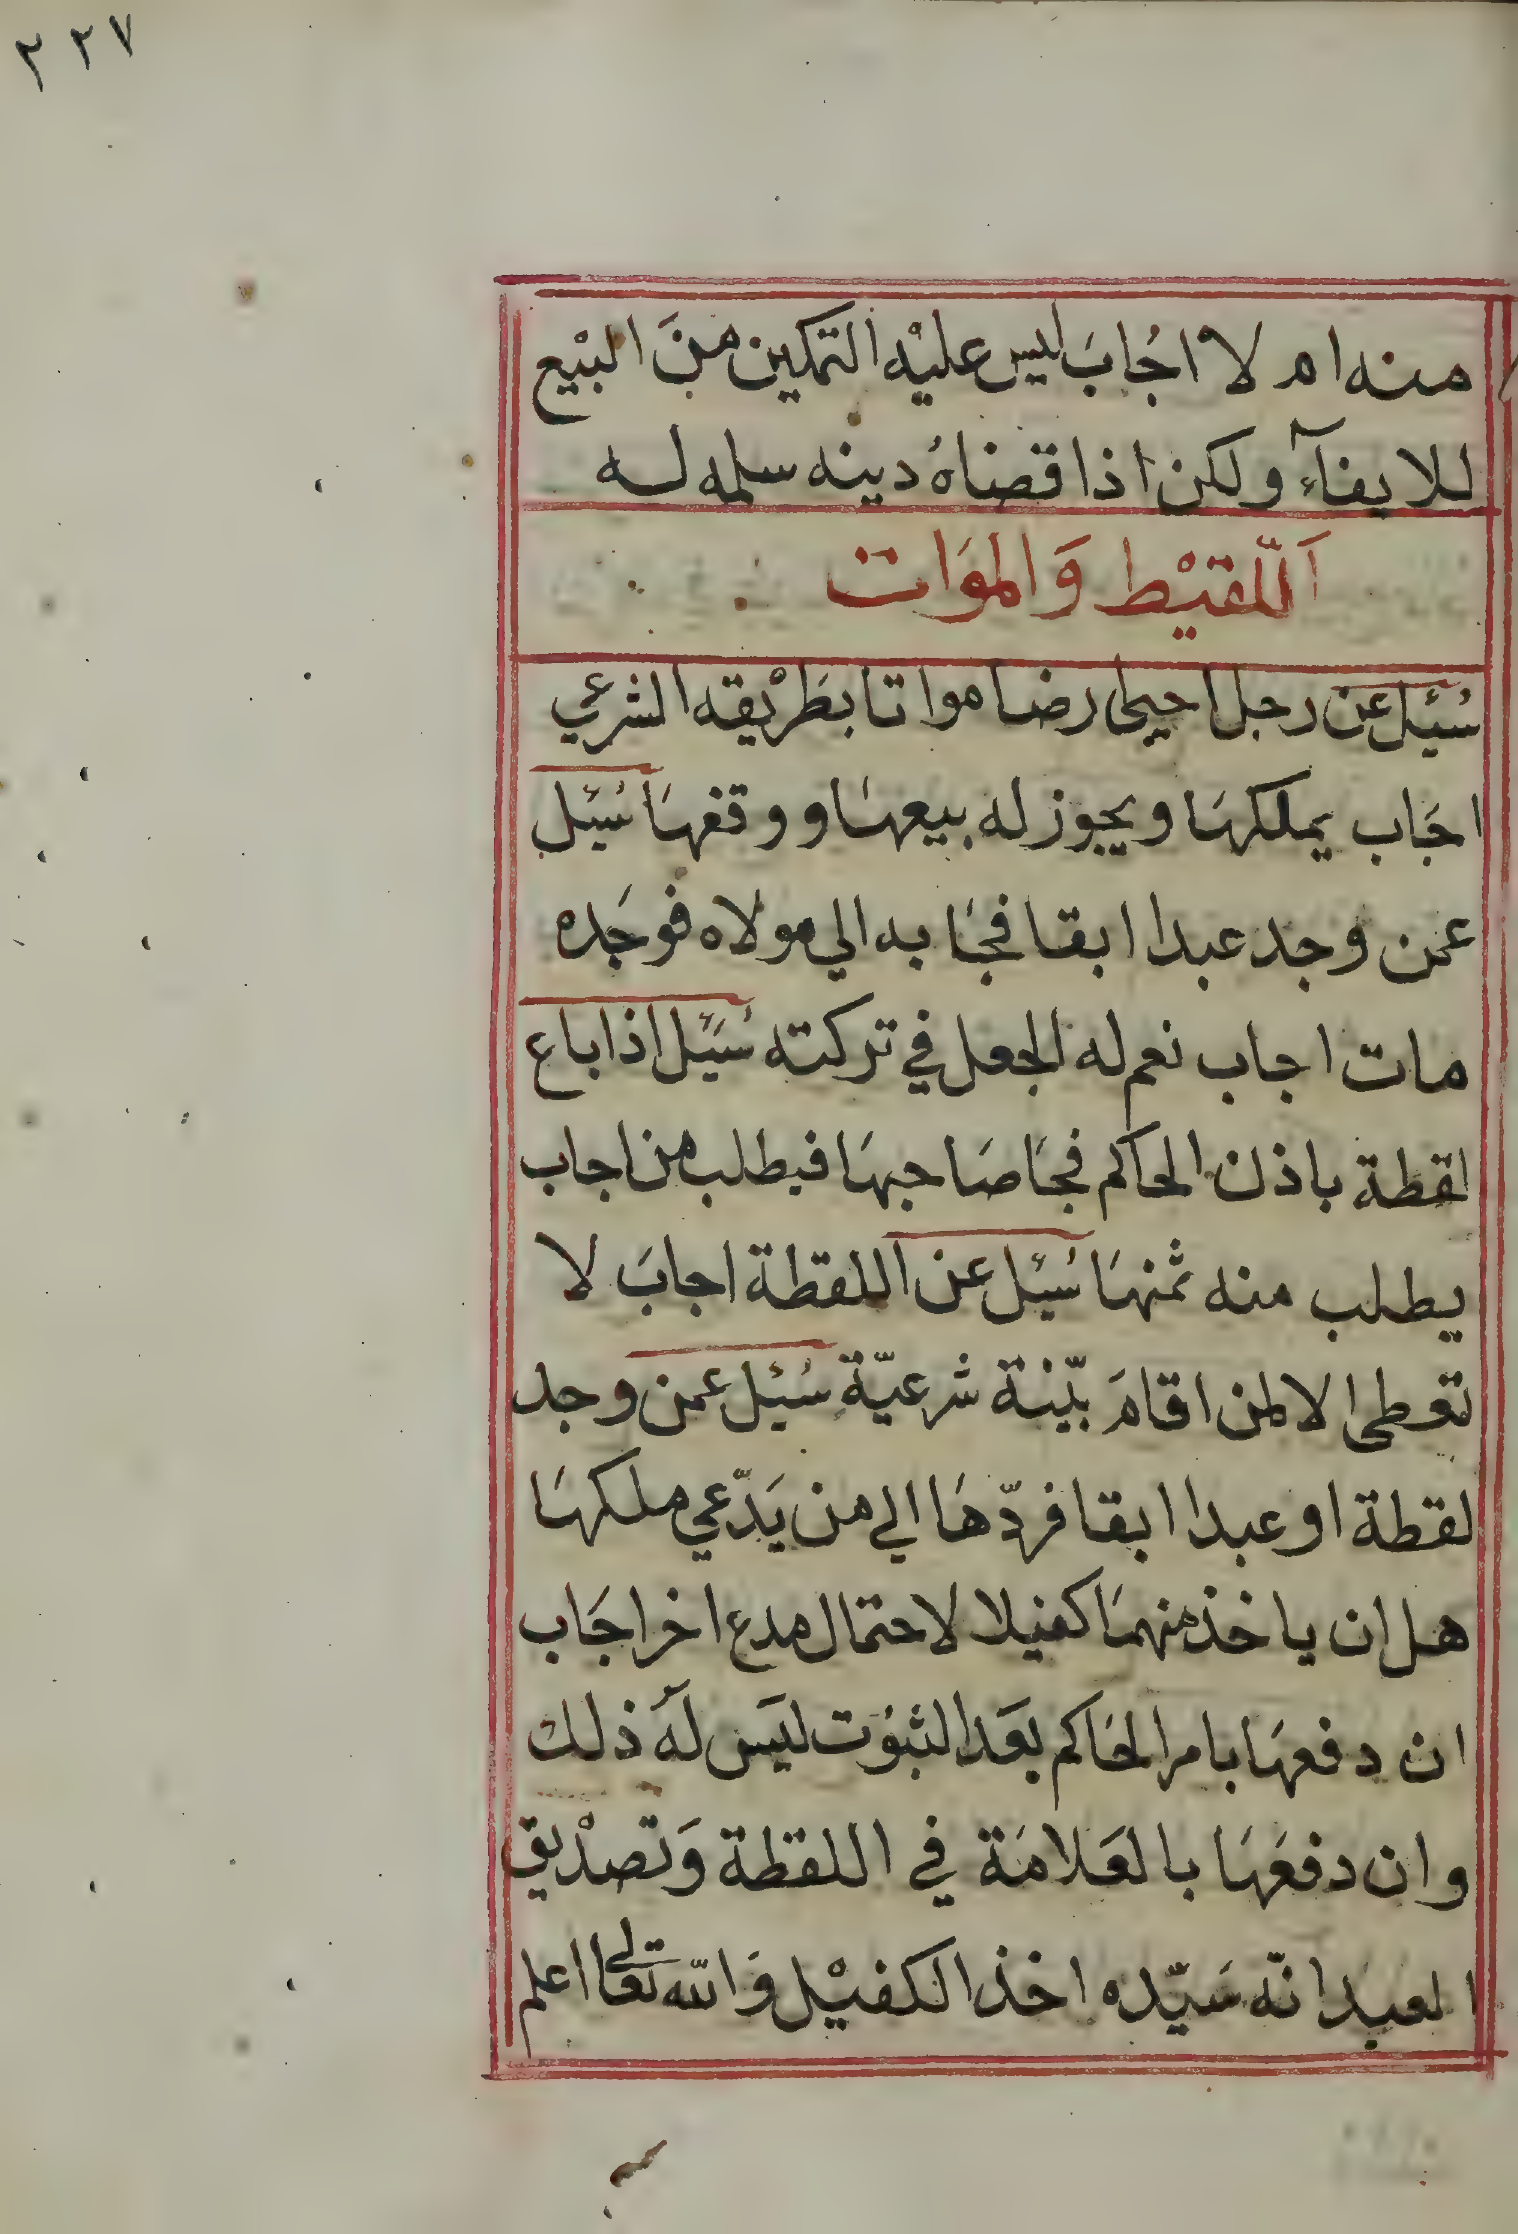 ٢٢٧
منه ام لا اجُابَ ليس عليْه التمكين منَ البيْع
للايفآء ولكن اذا قضاهُ دينه سلمه له
اَللّقيْط وَالموَات
سُئيل عن رجل احيى ارضا مواتا بطَرْيقه الشرعي
اجَاب يملكهَا ويجوز له بيعهَا ووقفهَا سُئيل
عمن وجد عبدا ابقا فجَا به الي مولاه فوجَده
مات اجاب نعم له الجعل في تركته سُئيل اذا باع
لقطة باذن الحاكم فجَا صَاحبهَا فيطلب من اجاب
يطلب منه ثمنهَا سُئيل عن اللقطة اجابَ لا
تعطى الا لمن اقامَ بيّنة شرعيّة سُئيل عمن وجد
لقطة او عبدا ابقا فردّهَا الي من يَدّعي ملكهَا
هل ان ياخذ منهمَا كفيلا لاحتمال مدع اخر اجَاب
ان دفعهَا بامر الحَاكم بعَد الثبوُت ليَس لهُ ذلك
وان دفعَهَا بالعَلامَة في اللقطة وَتصدْيق
العبد انّه سَيّده اخذ الكفيْل وَالله تعالى اعلم